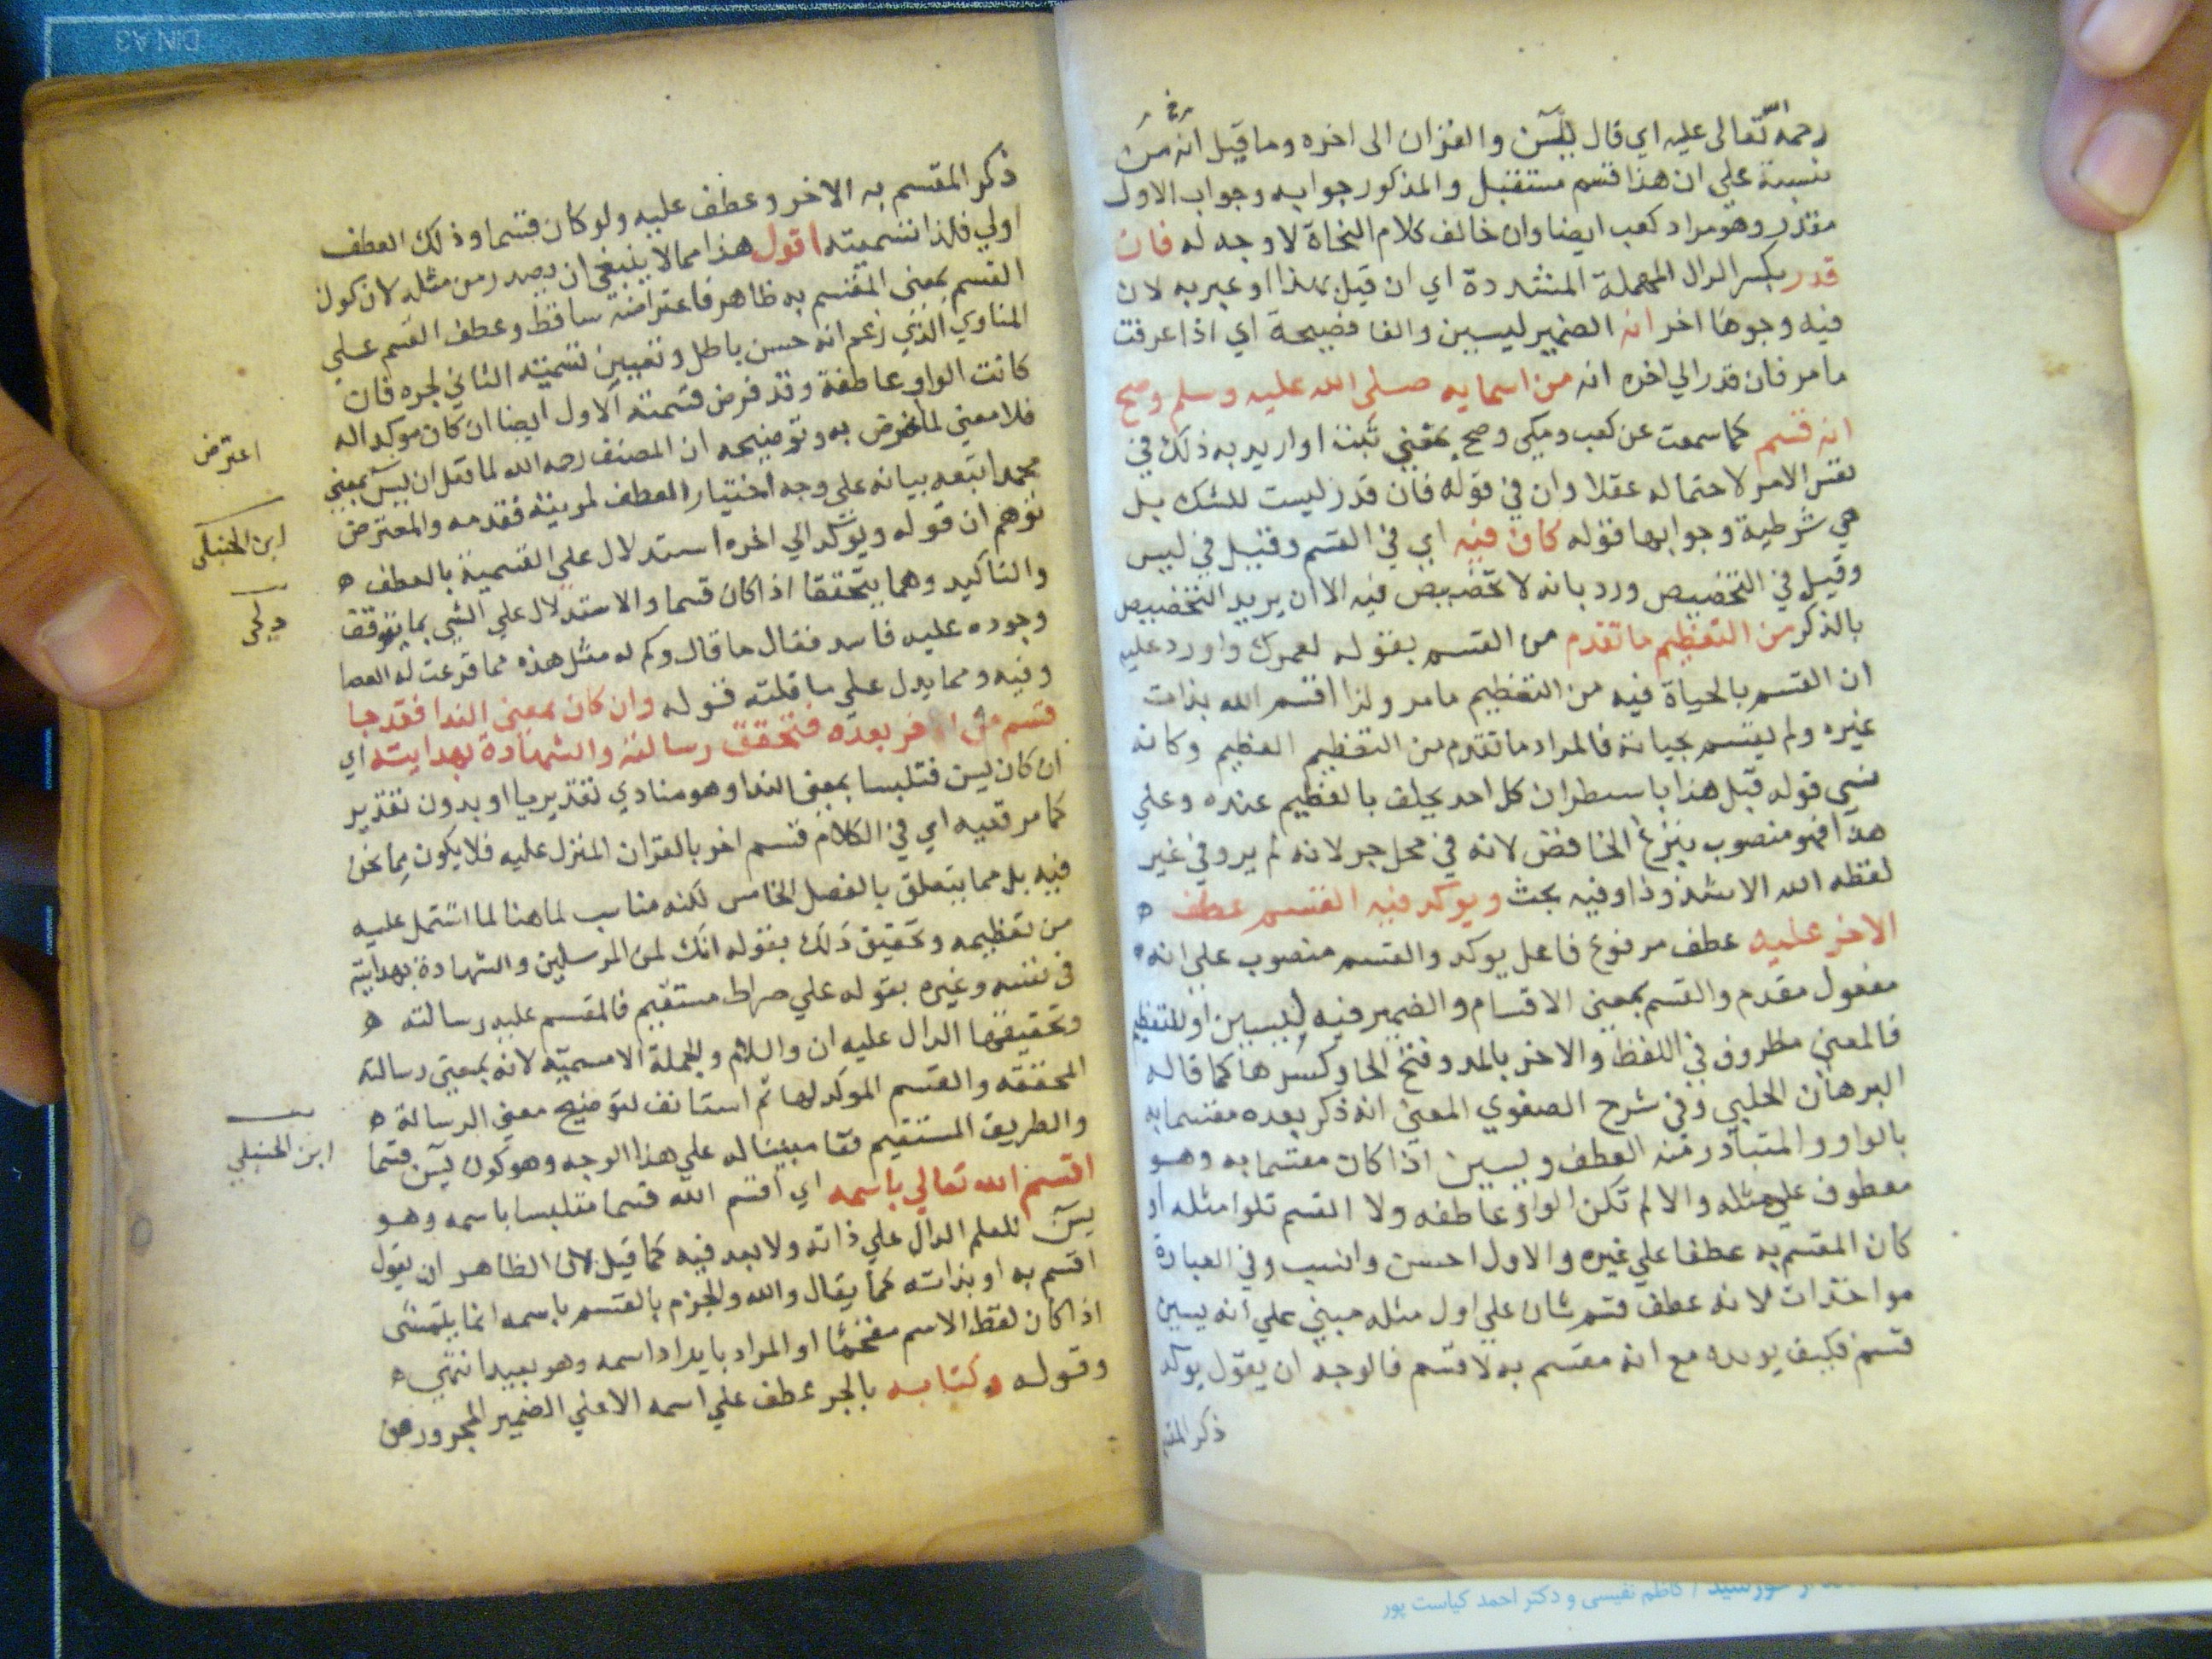 رحمه الله تعالى عليه اي قال ليس والقران الى اخره وما قيل انه من
نسبة علي ان هذا قسم مستقبل والمذكور جوابه وجواب الاول
مقدر وهو مراد كعب ايضا وان خالف كلام النحاة لا وجه له فان
قدر بكسر الدال المهملة المشددة اي ان قيل بهذا او عبر به لان
فيه وجوها اخر انه الضمير ليسين والفا فصيحة اي اذا عرفت
ما مر فان قدر الي اخره انه من اسمايه صلى الله عليه وسلم وصح
انه قسم كما سمعت عن كعب ومكي وصح بمعني ثبت او اريد به ذلك في
نفس الامر لاحتماله عقلا وان في قوله فان قدر ليست للشك بل
هي شرطية وجوابها قوله كان فيه اي في القسم وقيل في ليس
وقيل في التخصيص ورد بانه لا تخصيص فيه الا ان يريد التخصيص
بالذكر من التعظيم ما تقدم من القسم بقوله لعمرك واورد عليه
ان القسم بالحياة فيه من التعظيم ما مر ولذا اقسم الله بذات
غيره ولم يقسم بحياته فالمراد ما تقدم من التعظيم العظيم وكانه
نسي قوله قبل هذا باسطران كل احد يحلف بالعظيم عنده وعلي
هذا فهو منصوب بنزع الخافض لانه في محل جر لانه لم يرو في غير
لفظه الله الا شذوذا وفيه بحث ويوكد فيه القسم عطف
الاخر عليه عطف مرفوع فاعل يوكد والقسم منصوب علي انه
مفعول مقدم والقسم بمعني الاقسام والضمير فيه ليسين او للتعظيم
فالمعني مظروف في اللفظ والاخر بالمد وفتح الخا وكسرها كما قاله
البرهان الحلبي وفي شرح الصفوي المعني انه ذكر بعده مقسما به
بالواو والمتبادر منه العطف ويسين اذا كان مقسما به وهو
معطوف علي مثله والا لم تكن الواو عاطفه ولا القسم تلوا مثله او
كان المقسم به عطفا علي غيره والاول احسن وانسب وفي العبارة
مواخذات لانه عطف قسم ثان علي اول مثله مبني علي انه يسين
قسم فكيف يوده مع انه مقسم به لا قسم فالوجه ان يقول يوكد
ذكر المقسم
ذكر المقسم به الاخر وعطف عليه ولو كان قسما وذلك العطف
اولي فلذا تسميته اقول هذا مما لا ينبغي ان يصدر من مثله لان كون
القسم بمعني المقسم به ظاهر فاعتراضه ساقط وعطف القسم علي
المناوي الذي زعم انه حسن باطل وتعيين تسميته الثاني لجره فان
كانت الواو عاطفة وقد فرض قسمته الاول ايضا ان كان موكدا له
فلا معني لما تعرض به وتوضيحه ان المصنف رحمه الله لما نقل ان يس بمعني
محمد اتبعه بيانه علي وجه اختيار العطف لمزية فقدمه والمعترض
توهم ان قوله ويوكد الي اخره استدلال علي القسمية بالعطف
والتاكيد وهما يتحققا اذا كان قسما والاستدلال علي الشي بما يتوقف
وجوده عليه فاسد فقال ما قال وكم له مثل هذه مما قرعت له العصا
وفيه ومما يدل علي ما قلته قوله وان كان بمعني الندا فقد جا
قسم اخر بعده فتحقق رسالته والشهادة بهدايته اي
ان كان يسن فتلبسا بمعني الندا وهو منادي تقديريا او بدون تقدير
كما مر ففيه اي في الكلام قسم اخر بالقران المنزل عليه فلا يكون مما نحن
فيه بل مما يتعلق بالفصل الخامس لكنه مناسب لما هنا لما اشتمل عليه
من تعظيمه وتحقيق ذلك بقوله انك لمن المرسلين والشهادة بهدايته
في نفسه وغيره بقوله علي صراط مستقيم فالمقسم عليه رسالته
وتحقيقها الدال عليه ان واللام والجملة الاسمية لانه بمعني رسالته
المحققه والقسم الموكد لها ثم استانف لتوضيح معني الرسالة
والطريق المستقيم فقا مبينا له علي هذا الوجه وهو كون يس قسما
اقسم الله تعالي باسمه اي اقسم الله قسما متلبسا باسمه وهو
يس للعلم الدال علي ذاته ولا بعد فيه كما قيل لان الظاهر ان يقول
اقسم به او بذاته كما يقال والله والجزم بالقسم باسمه انما يتمشى
اذا كان لفظ الاسم مقحما او المراد بايراد اسمه وهو بعيد انتهي
وقوله وكتابه بالجر عطف علي اسمه الا علي الضمير المجرور من
اعترض
ابن الحنبلي
دلجي
ابن الحنبلي
DIN A3
كاظم نفيسى و دكتر احمد كياست پور